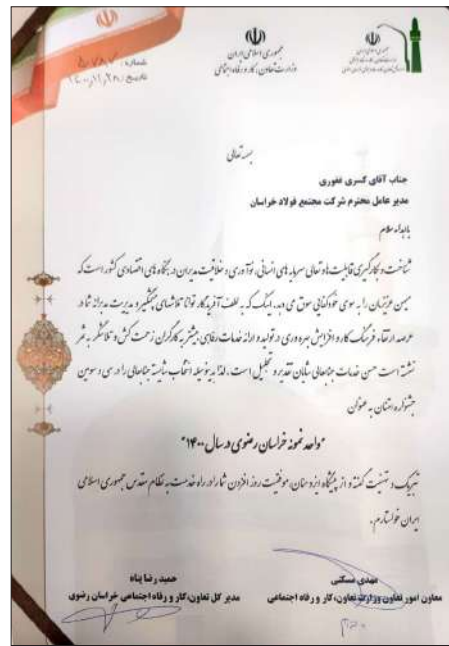 جمهوری اسلامی ایران
وزارت تعاون، کار و رفاه اجتماعی
جمهوری اسلامی ایران
وزارت تعاون، کار و رفاه اجتماعی
شماره: ۵۰۷۸۷
تاریخ: ۱۴۰۰٫۱۱٫۲۸
بسمه تعالی
جناب آقای کسری غفوری
مدیر عامل محترم شرکت مجتمع فولاد خراسان
با اهداء سلام
شناخت و بکارگیری قابلیت ها و تعالی سرمایه های انسانی، نوآوری و خلاقیت مدیران در بنگاه های اقتصادی کشور است که
میهن عزیزمان را به سوی خودکفایی سوق می دهد، اینک که به لطف آفریدگار توانا تلاشهای پیگیر و مدیریت مدبرانه شما در
عرصه ارتقاء فرهنگ کار و افزایش بهره وری در تولید و ارائه خدمات رفاهی بیشتر به کارگران زحمت کش و تلاشگر به ثمر
نشسته است حسن خدمات جنابعالی شایان تقدیر و تجلیل است. لذا بدینوسیله انتخاب شایسته جنابعالی را در سی و سومین
جشنواره امتنان به عنوان
"واحد نمونه خراسان رضوی در سال ۱۴۰۰"
تبریک و تهنیت گفته و از پیشگاه ایزد منان، موفقیت روز افزون شما را در راه خدمت به نظام مقدس جمهوری اسلامی
ایران خواستارم.
مهدی مسکنی
معاون امور تعاون وزارت تعاون، کار و رفاه اجتماعی
حمید رضا پناه
مدیر کل تعاون، کار و رفاه اجتماعی خراسان رضوی